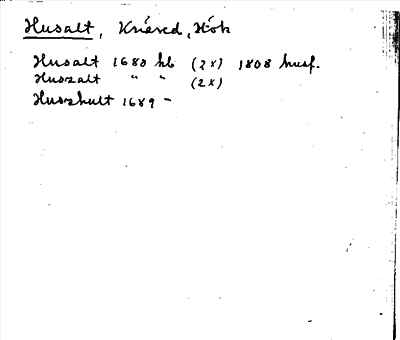 Husalt, Knäred, Hök
Husalt 1680 hb (2x) 1808 husf.
Huszalt " " (2x)
Huszhult 1689 -